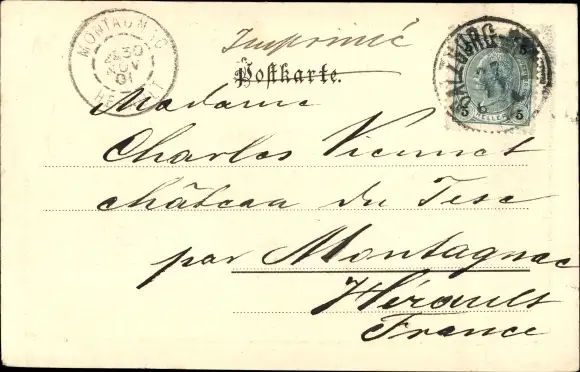 MONTAGNAC
30
NOV
01
HERAULT
Imprimé
SALZBURG
Postkarte.
5 5
Madame
Charles Viennet
château du Tesc
par Montagnac
Hérault
France